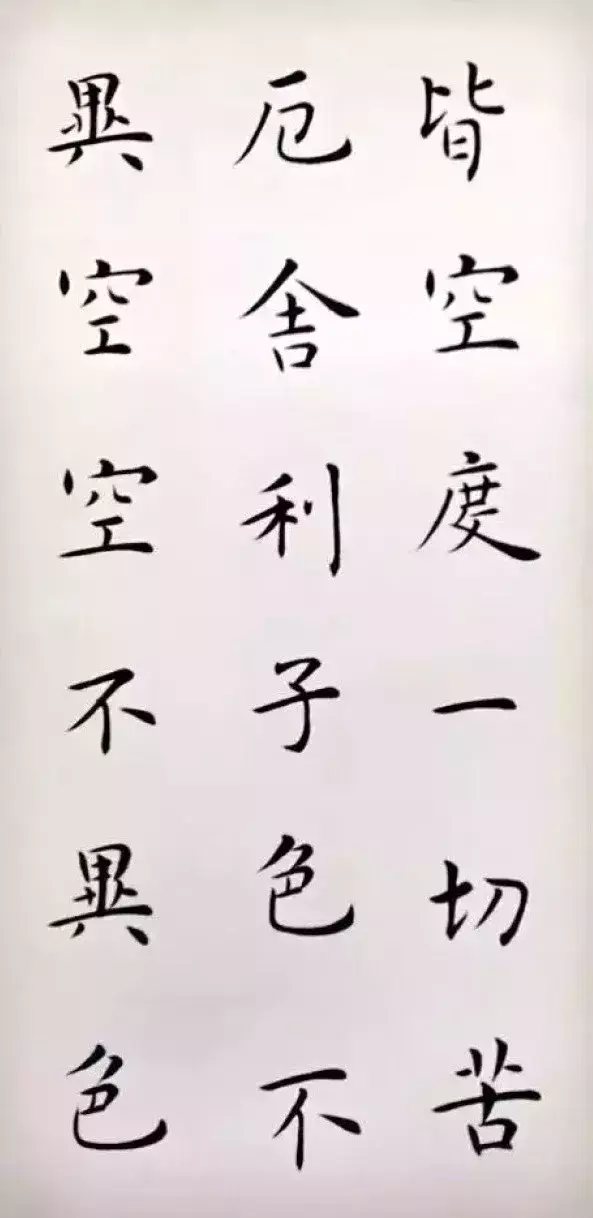 皆空度一切苦
厄舍利子色不
異空空不異色